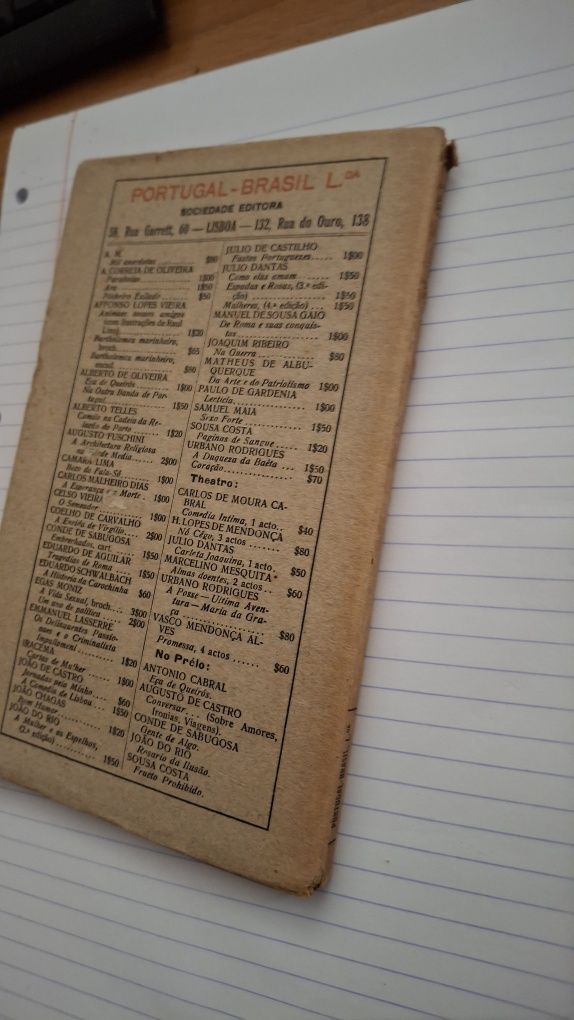 PORTUGAL-BRASIL L.DA
SOCIEDADE EDITORA
58, Rua Garrett, 60 — LISBOA — 132, Rua do Ouro, 138
A. M.
Mil anecdotas ..... $80
A. CORREIA DE OLIVEIRA
Parabolas ..... 1$00
Ara ..... 1$50
Pinheiro Exilado ..... $50
AFFONSO LOPES VIEIRA
Animaes nossos amigos
(com ilustrações de Raul
Lino) ..... 1$20
Bartholomeu marinheiro,
broch. ..... $65
Bartholomeu marinheiro,
encad. ..... $80
ALBERTO DE OLIVEIRA
Eça de Queirós ..... 1$00
Na Outra Banda de Por-
tugal ..... 1$50
ALBERTO TELLES
Camilo na Cadeia da Re-
lação do Porto ..... 1$20
AUGUSTO FUSCHINI
A Architectura Religiosa
na Edade Media ..... 2$00
CAMARA LIMA
Bico do Fala-Só ..... 1$00
CARLOS MALHEIRO DIAS
A Esperança e a Morte . 1$00
CELSO VIEIRA
O Semeador ..... 1$00
COELHO DE CARVALHO
A Eneida de Virgilio ..... 2$00
CONDE DE SABUGOSA
Embrechados, cart.
EDUARDO DE AGUILAR 1$50
Tragedias de Roma .....
EDUARDO SCHWALBACH 1$50
A Historia da Carochinha $60
EGAS MONIZ
A Vida Sexual, broch. ... 3$00
Um ano de politica ..... 2$00
EMMANUEL LASSERRE
Os Delinquentes Passio-
naes e o Criminalista
Impallomeni ..... 1$20
IRACEMA
Cartas de Mulher ..... 1$00
JOÃO DE CASTRO
Jornadas pelo Minho ..... $60
A Comedia de Lisboa ... 1$50
JOÃO CHAGAS
Bom Humor ..... 1$20
JOÃO DO RIO
A Mulher e os Espelhos,
(2.ª edição) ..... 1$50
JULIO DE CASTILHO
Fastos Portuguezes ..... 1$00
JULIO DANTAS
Como elas amam ..... 1$50
Espadas e Rosas, (3.ª edi-
ção) ..... 1$50
Mulheres, (4.ª edição) ... 1$50
MANUEL DE SOUSA GAIO
De Roma e suas conquis-
tas ..... 1$00
JOAQUIM RIBEIRO
Na Guerra ..... $80
MATHEUS DE ALBU-
QUERQUE
Da Arte e do Patriotismo 1$00
PAULO DE GARDENIA
Leticia ..... 1$00
SAMUEL MAIA
Sexo Forte ..... 1$50
SOUSA COSTA
Paginas de Sangue ..... 1$20
URBANO RODRIGUES
A Duqueza da Baêta ... 1$50
Coração ..... $70
Theatro:
CARLOS DE MOURA CA-
BRAL
Comedia Intima, 1 acto.. $40
H. LOPES DE MENDONÇA
Nó Cégo, 3 actos ..... $80
JULIO DANTAS
Carlota Joaquina, 1 acto. $50
MARCELINO MESQUITA
Almas doentes, 2 actos .. $60
URBANO RODRIGUES
A Posse—Ultima Aven-
tura—Maria da Gra-
ça ..... $80
VASCO MENDONÇA AL-
VES
Promessa, 4 actos ..... $60
No Prélo:
ANTONIO CABRAL
Eça de Queirós.
AUGUSTO DE CASTRO
Conversar... (Sobre Amores,
Ironias, Viagens).
CONDE DE SABUGOSA
Gente de Algo.
JOÃO DO RIO
Rosario da Ilusão.
SOUSA COSTA
Fructo Prohibido.
PORTUGAL-BRASIL L.da